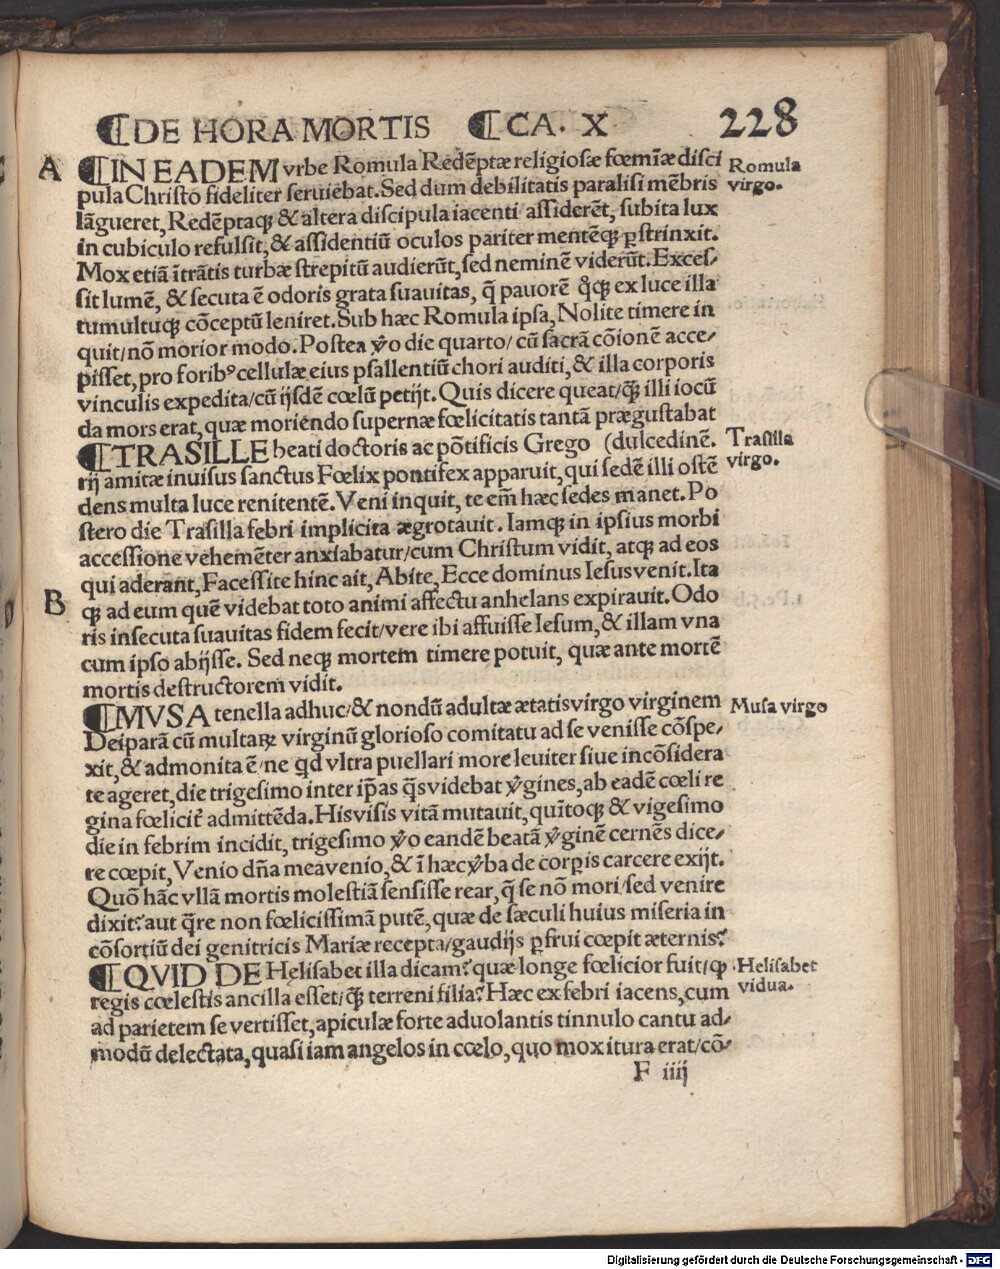 ¶DE HORA MORTIS ¶CA. X 228
A ¶IN EADEM vrbe Romula Redẽptæ religiosæ fœmĩæ disci Romula
pula Christo fideliter seruiebat. Sed dum debilitatis paralisi mẽbris virgo.
lãgueret, Redẽptaqꝫ & altera discipula iacenti assiderẽt, subita lux
in cubiculo refulsit, & assidentiũ oculos pariter mentẽqꝫ ꝑstrinxit.
Mox etiã ĩtrãtis turbæ strepitũ audierũt, sed neminẽ viderũt. Exces⸗
sit lumẽ, & secuta ẽ odoris grata suauitas, q̃ pauorẽ q̊qꝫ ex luce illa
tumultuqꝫ cõceptũ leniret. Sub hæc Romula ipsa, Nolite timere in
quit/nõ morior modo. Postea ṽo die quarto/cũ sacrã cõionẽ acce⸗
pisset, pro foribꝰ cellulæ eius psallentiũ chori auditi, & illa corporis
vinculis expedita/cũ ijsdẽ cœlũ petijt. Quis dicere queat/qꝫ̃ illi iocũ
da mors erat, quæ moriendo supernæ fœlicitatis tantã prægustabat
¶TRASILLE beati doctoris ac põtificis Grego (dulcedinẽ. Trasilla
rij amitæ inuisus sanctus Fœlix pontifex apparuit, qui sedẽ illi ostẽ virgo.
dens multa luce renitentẽ. Veni inquit, te em̃ hæc sedes manet. Po
stero die Trasilla febri implicita ægrotauit. Iamqꝫ in ipsius morbi
accessione vehemẽter anxiabatur/cum Christum vidit, atqꝫ ad eos
qui aderant, Facessite hinc ait, Abite, Ecce dominus Iesus venit. Ita
B qꝫ ad eum quẽ videbat toto animi affectu anhelans expirauit. Odo
ris insecuta suauitas fidem fecit/vere ibi affuisse Iesum, & illam vna
cum ipso abijsse. Sed neqꝫ mortem timere potuit, quæ ante mortẽ
mortis destructorem vidit.
¶MVSA tenella adhuc/& nondũ adultæ ætatis virgo virginem Musa virgo
Deiparã cũ multaꝝ virginũ glorioso comitatu ad se venisse cõspe⸗
xit, & admonita ẽ/ne qd vltra puellari more leuiter siue incõsidera
te ageret, die trigesimo inter ip̃as q̃s videbat ỹgines, ab eadẽ cœli re
gina fœlicit̃ admittẽda. His visis vitã mutauit, quĩtoqꝫ & vigesimo
die in febrim incidit, trigesimo ṽo eandẽ beatã ỹginẽ cernẽs dice⸗
re cœpit, Venio dña mea venio, & ĩ hæc ṽba de corꝑis carcere exijt.
Quõ hãc vllã mortis molestiã sensisse rear, q̃ se nõ mori/sed venire
dixit? aut q̃re non fœlicissimã putẽ, quæ de sæculi huius miseria in
cõsortiũ dei genitricis Mariæ recepta/gaudijs ꝑfrui cœpit æternis?
¶QVID DE Helisabet illa dicam? quæ longe fœlicior fuit/ꝙ Helisabet
regis cœlestis ancilla esset/qꝫ̃ terreni filia? Hæc ex febri iacens, cum vidua.
ad parietem se vertisset, apiculæ forte aduolantis tinnulo cantu ad⸗
modũ delectata, quasi iam angelos in cœlo, quo mox itura erat/cõ⸗
F iiij
Digitalisierung gefördert durch die Deutsche Forschungsgemeinschaft - DFG